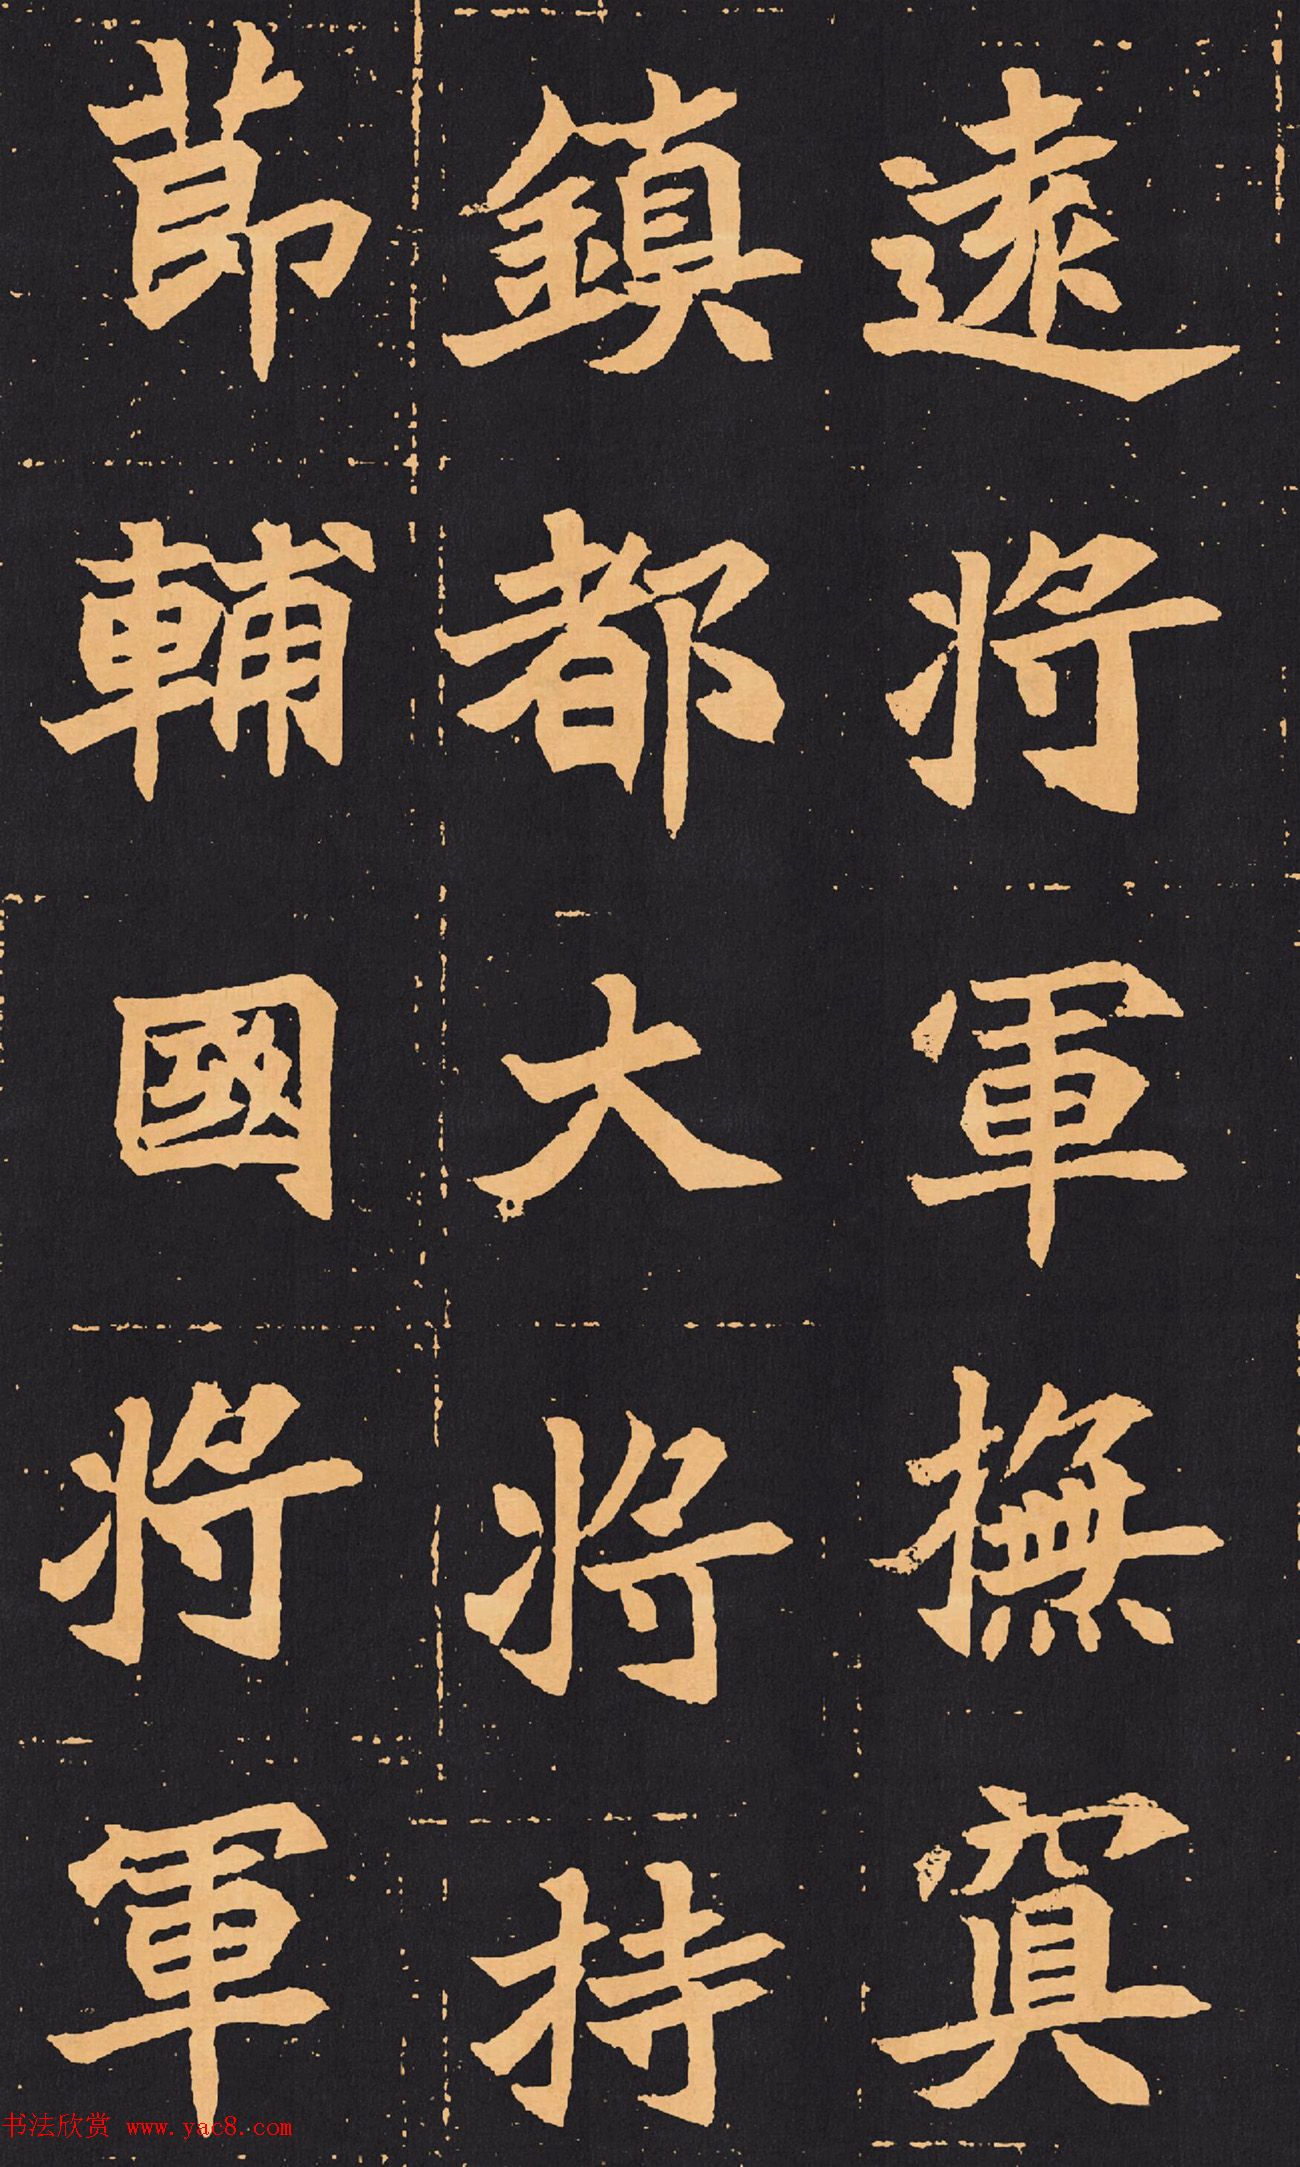 遠將軍撫寘
鎮都大將持
莭輔國將軍
书法欣赏 www.yac8.com